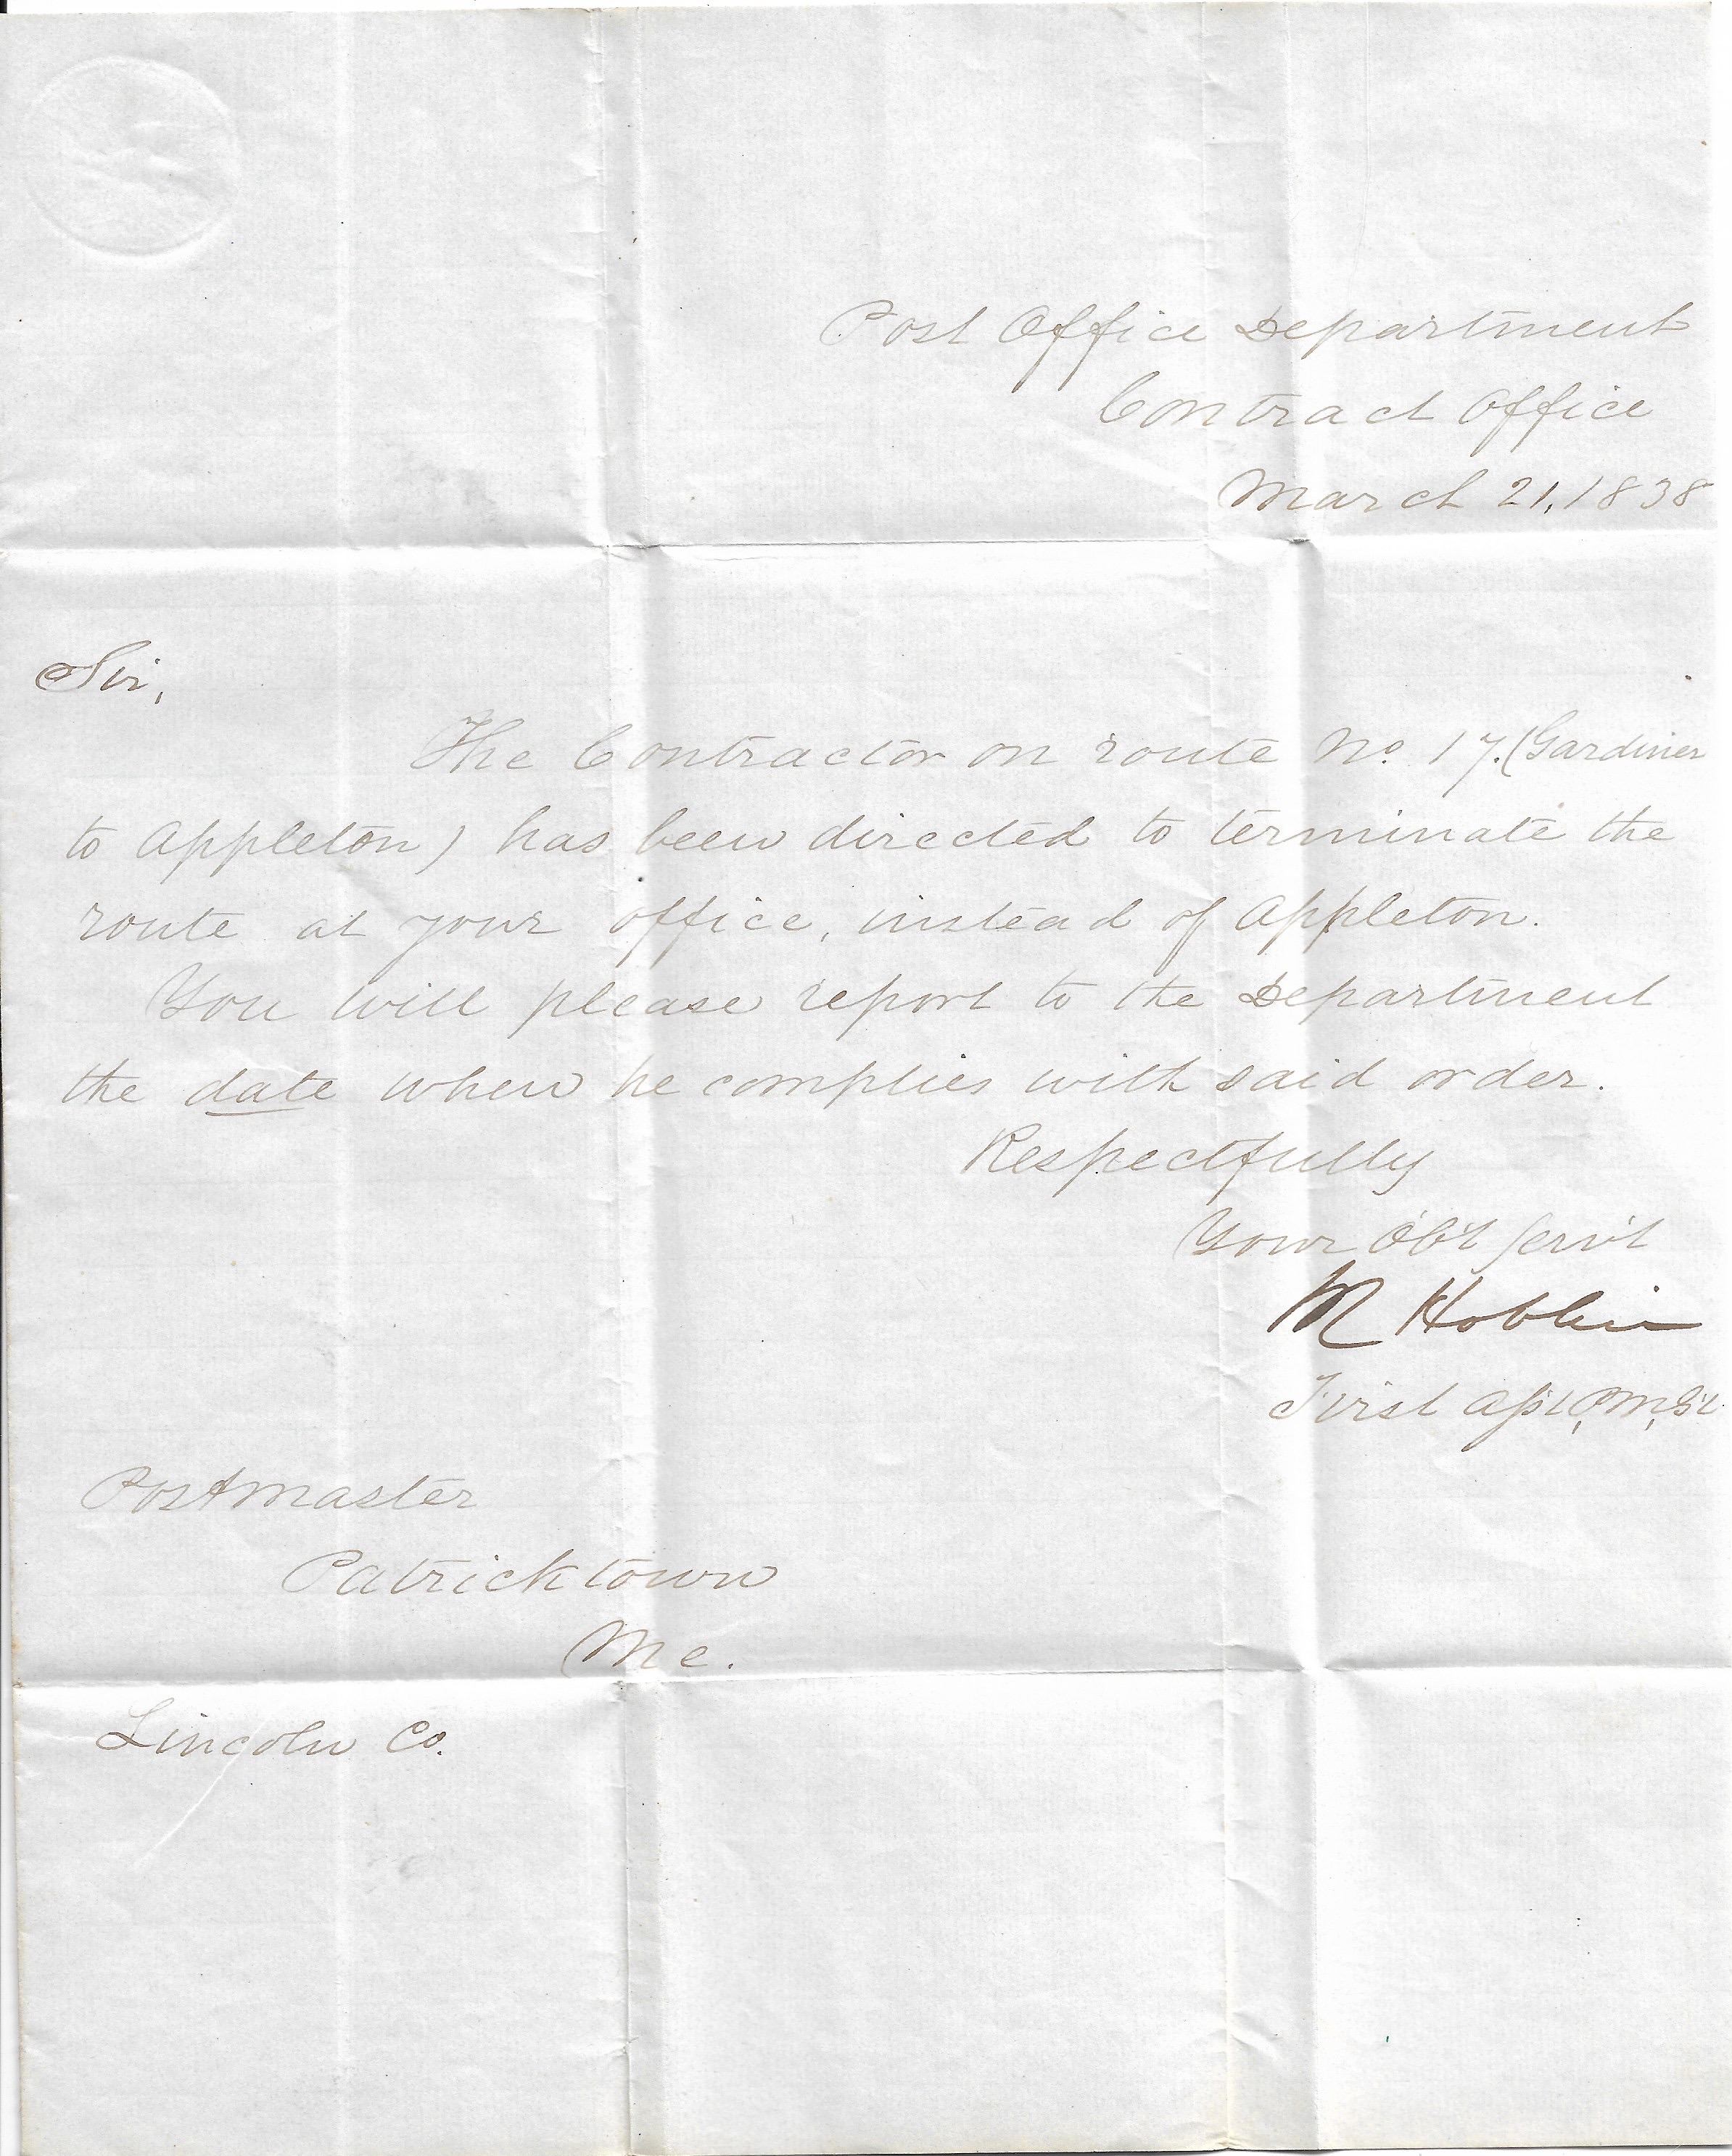 Post Office Department
Contract Office
March 21, 1838
Sir,
The Contractor on route No. 17. (Gardiner
to Appleton) has been directed to terminate the
route at your office, instead of Appleton.
You will please report to the Department
the date when he complies with said order.
Respectfully
Your Obt Servt
First Asst P.M. Gl
Postmaster
Patricktown
Me.
Lincoln Co.